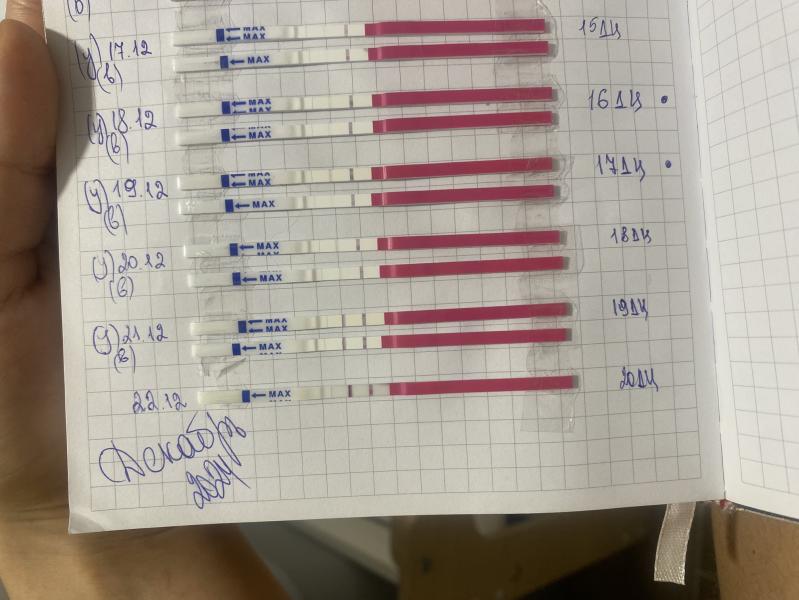 (в)
MAX
MAX 15ДЦ
(у) 17.12
(в) MAX
MAX 16ДЦ •
MAX
(у) 18.12
(в) MAX
MAX 17ДЦ •
(у) 19.12 MAX
(в) MAX
MAX 18ДЦ
(у) 20.12
(в) MAX
MAX 19ДЦ
(у) 21.12 MAX
(в) MAX
22.12 MAX 20ДЦ
Декабрь
2024